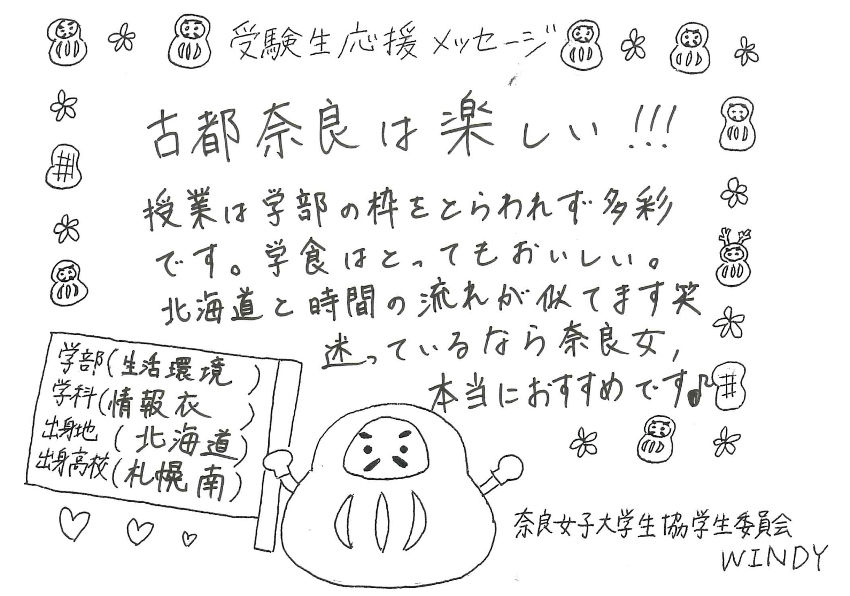 受験生応援メッセージ
古都奈良は楽しい!!!
授業は学部の枠をとらわれず多彩
です。学食はとってもおいしい。
北海道と時間の流れが似てます笑
迷っているなら奈良女,
本当におすすめです♪
学部(生活環境)
学科(情報衣)
出身地(北海道)
出身高校(札幌南)
奈良女子大学生協学生委員会
WINDY